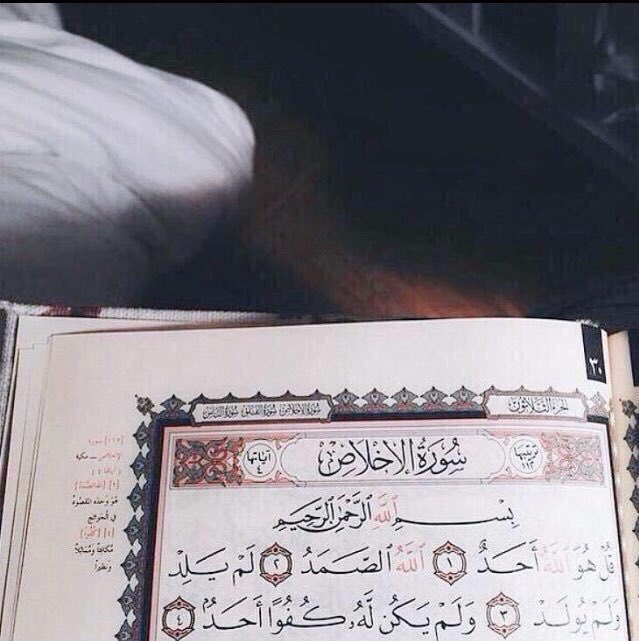 ٣٠
الجزء الثلاثون
سورة الإخلاص سورة الفلق سورة الناس
ترتيبها ١١٢
سُورَةُ الإِخْلَاصِ
آياتها ٤
بِسْمِ اللَّهِ الرَّحْمَٰنِ الرَّحِيمِ
قُلْ هُوَ اللَّهُ أَحَدٌ ١ اللَّهُ الصَّمَدُ ٢ لَمْ يَلِدْ
وَلَمْ يُولَدْ ٣ وَلَمْ يَكُن لَّهُ كُفُوًا أَحَدٌ ٤
[١١٢] سورة
الإخلاص — مكية
(آياتها ٤)
[٢] ﴿الصَّمَدُ﴾:
هُوَ وَحْدَهُ المَقْصُودُ
فِي الحَوَائِجِ
[٤] ﴿كُفُوًا﴾:
مُكَافِئًا وَمُمَاثِلًا
وَنَظِيرًا